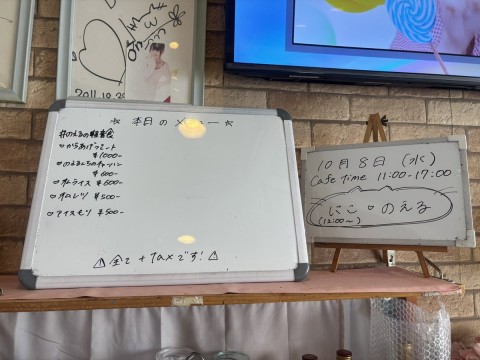 2011.10.29
☆ 本日のメニュー ☆
#のえるの軽食
♡からあげプレート
¥1000-
♡のえるんちのチャーハン
¥600-
♡オムライス ¥600-
♡オムレツ ¥500-
♡アイスもり ¥500-
⚠全て + taxです!⚠
10月8日 (水)
Cafe time 11:00-17:00
にこ♡のえる
(12:00~)